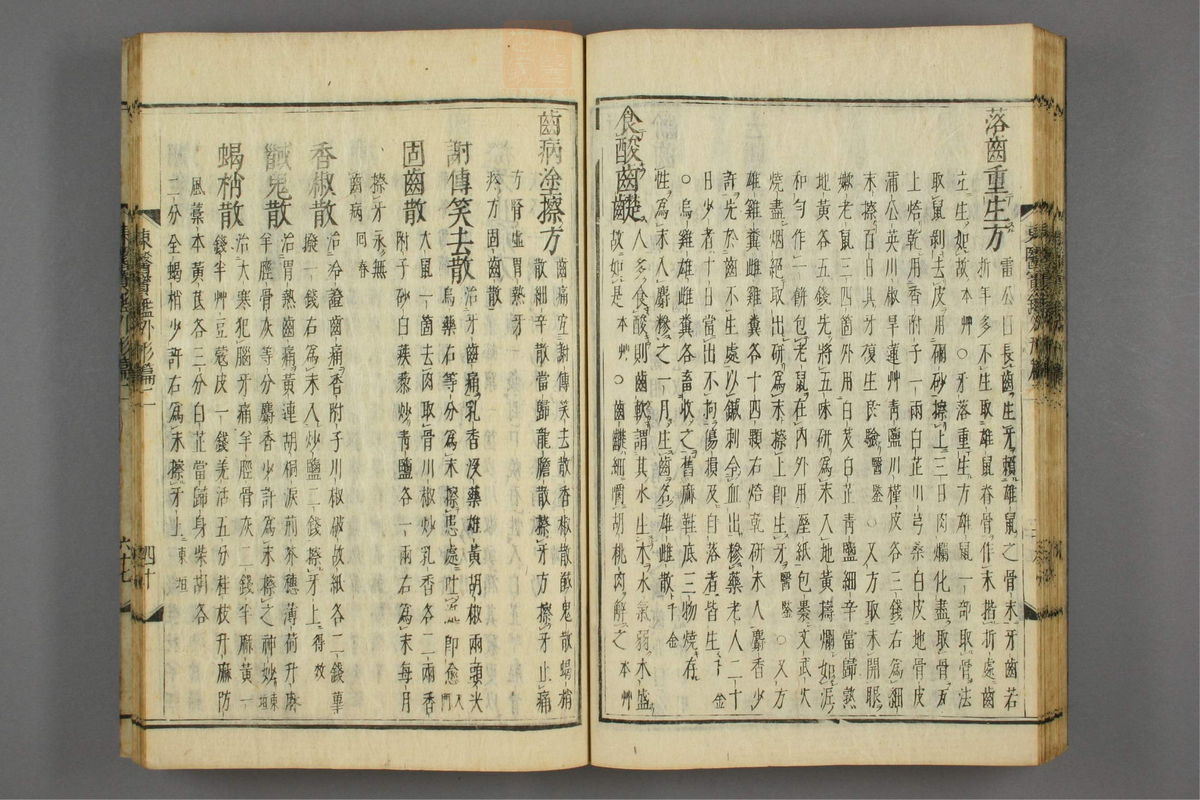 落齒重生方
雷公曰長齒生牙賴雄鼠之骨末牙齒若
折年多不生取雄鼠脊骨作末揩折處齒
立生如故本艸○牙落重生方雄鼠一部取骨法
取鼠剝去皮用硇砂擦上三日肉爛化盡取骨瓦
上焙乾用香附子一兩白芷川芎桑白皮地骨皮
蒲公英川椒旱蓮艸靑鹽川槿皮各三錢右爲細
末擦百日其牙復生良驗醫鑒○又方取未開眼
嫩老鼠三四箇外用白芨白芷靑鹽細辛當歸熟
地黃各五錢先將五味硏爲末入地黃擣爛如泥
和勻作一餠包老鼠在內外用濕紙包裹文武火
燒盡烟絶取出硏爲末擦上卽生牙醫鑒○又方
雄雞糞雌雞糞各十四顆右焙乾硏末入麝香少
許先於齒不生處以鍼刺令血出糝藥老人二十
日少者十日當出不拘傷損及自落者皆生
○烏雞雄雌糞各畜收之舊麻鞋底三物燒存
性爲末入麝糝之一月生齒名雄雌散千金
食酸齒齼
人多食酸則齒軟謂其水生木水氣弱木盛
齒故如是本艸○齒齼細嚼胡桃肉解之本艸
齒病塗擦方
齒痛宜謝傳笑去散香椒散䶢鬼散蝎梢
散細辛散當歸龍膽散擦牙方擦牙止痛
方腎虛胃熱牙
疼方固齒散
謝傳笑去散
治牙齒痛乳香沒藥雄黃胡椒兩頭尖
烏藥右等分爲末擦患處吐涎卽愈入門
固齒散
大鼠一箇去肉取骨川椒炒乳香各二兩香
附子砂白蒺藜炒靑鹽各一兩右爲末每月
擦牙永無
齒病回春
香椒散
治冷證齒痛香附子川椒破故紙各二錢蓽
撥一錢右爲末入炒鹽二錢擦牙上得效
䶢鬼散
治胃熱齒痛黃連胡桐淚荊芥穗薄荷升麻
羊脛骨灰等分麝香少許爲末擦之神妙東垣
蝎梢散
治大寒犯腦牙痛羊脛骨灰二錢半麻黃一
錢半草豆蔻皮一錢羌活五分桂枝升麻防
風藁本黃芪各三分白芷當歸身柴胡各
二分全蝎梢少許右爲末擦牙上東垣
東醫寶鑑外形篇二
四十